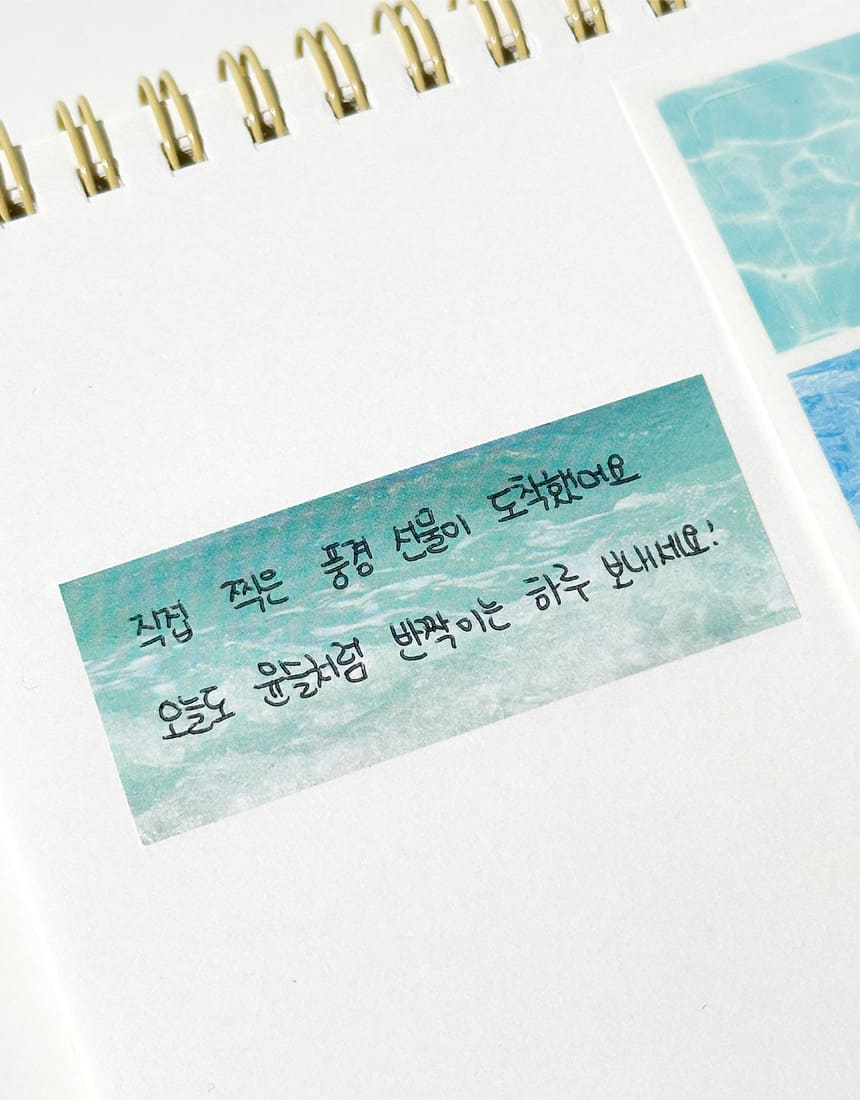 직접 찍은 풍경 선물이 도착했어요
오늘도 윤슬처럼 반짝이는 하루 보내세요!